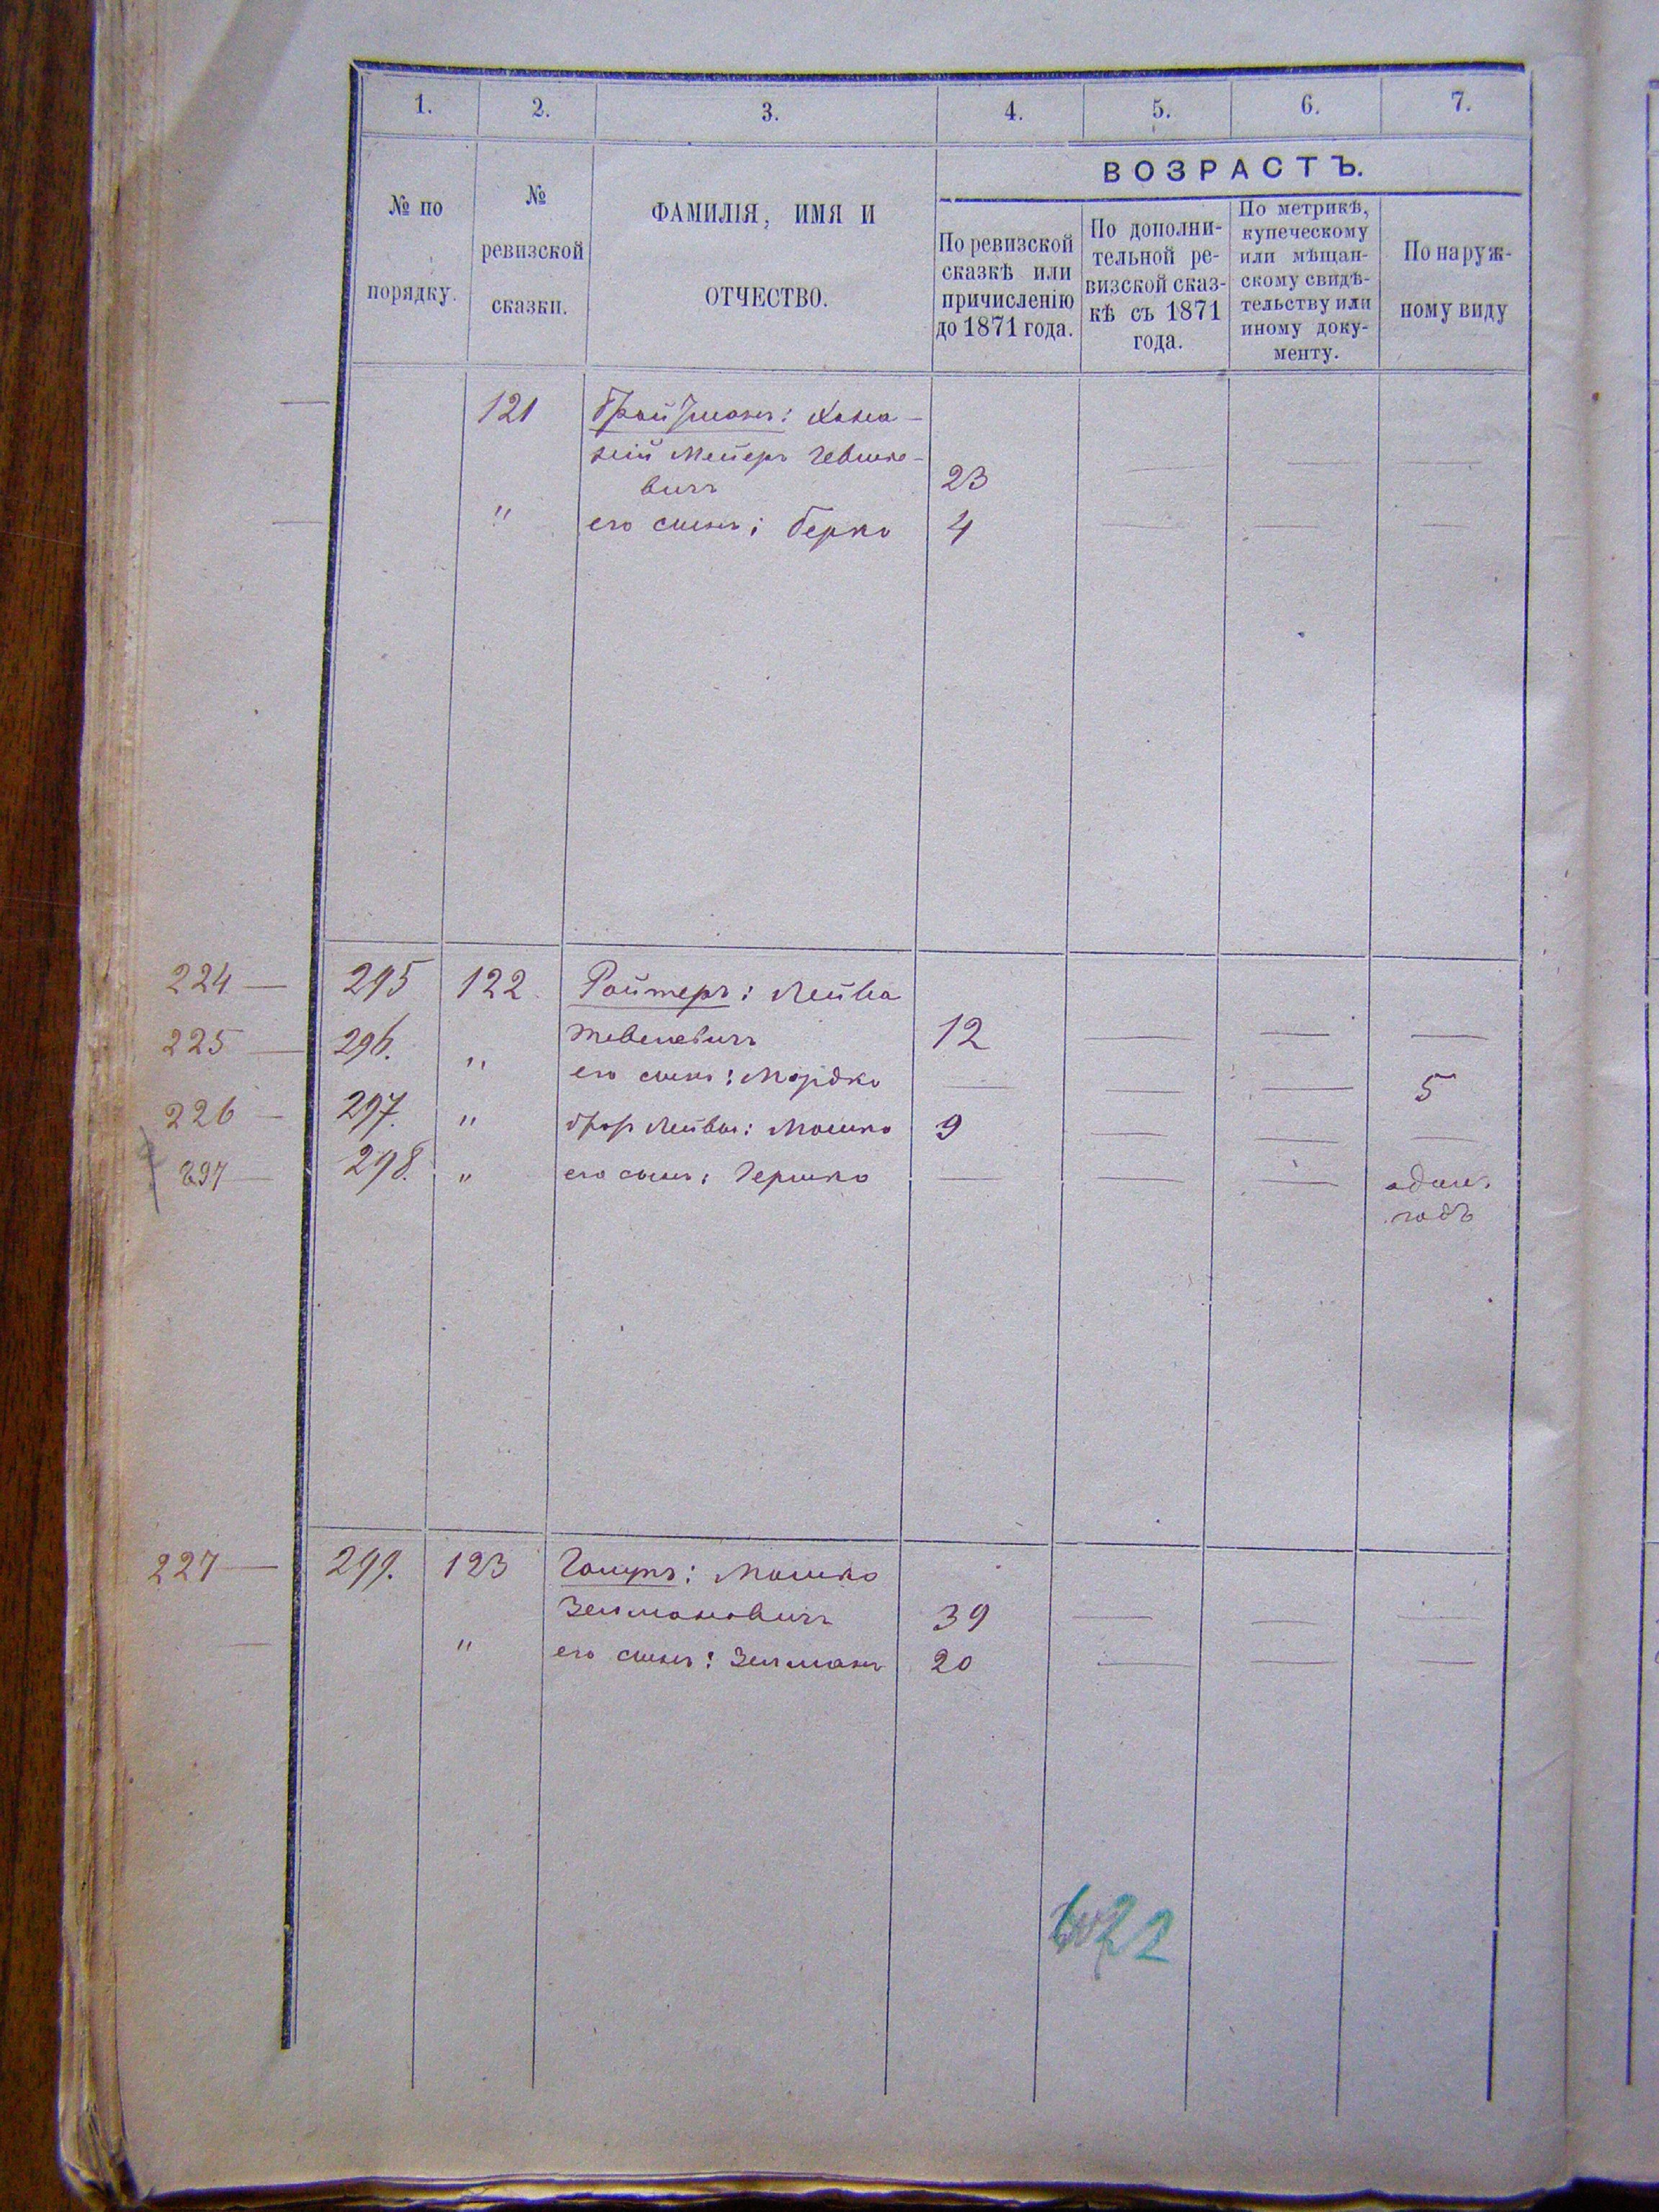 1. 2. 3. 4. 5. 6. 7.
№ по порядку.
№ ревизской сказки.
ФАМИЛІЯ, ИМЯ И ОТЧЕСТВО.
ВОЗРАСТЪ.
По ревизской сказкѣ или причисленію до 1871 года.
По дополни-
тельной ре-
визской сказ-
кѣ съ 1871
года.
По метрикѣ,
купеческому
или мѣщан-
скому свидѣ-
тельству или
иному доку-
менту.
По наруж-
ному виду
— 121
Мейеръ
вичъ 23 — — —
— " его сынъ: Берко 4 — — —
224 — 295 122. Ройтеръ: Лейба
225 — 296. " Тевелевичъ 12 — — —
его сынъ: Мордко — — — 5
226 — 297. " братъ Лейбы: Мошко 9 — — —
298. " его сынъ: Гершко — — — один.
годъ
227 — 299. 123 Мошко
Зельмановичъ 39 — — —
— " его сынъ: Зельманъ 20 — — —